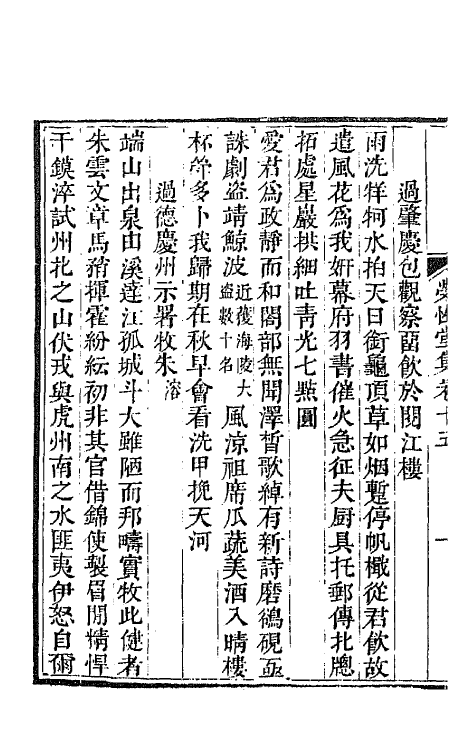 樂性堂集卷十五　一
過肇慶包觀察畱飲於閱江樓
雨洗牂牁水拍天日銜龜頂草如烟暫停帆檝從君飲故
遣風花爲我姸幕府羽書催火急征夫厨具托郵傳北牕
拓處星巖拱細吐靑光七㸃圓
愛君爲政靜而和閤部無聞澤晳歌綽有新詩磨鵒硯亟
誅劇盜靖鯨波近獲海陵大盜數十名風凉祖席瓜蔬美酒入晴樓
杯斝多卜我歸期在秋早會看洗甲挽天河
過德慶州示署牧朱溶
端山出泉由溪達江孤城斗大雖陋而邦疇實牧此健者
朱雲文章馬矟揮霍紛紜初非其官借錦使製眉閒精悍
干鏌淬試州北之山伏戎與虎州南之水匪夷伊怒自爾